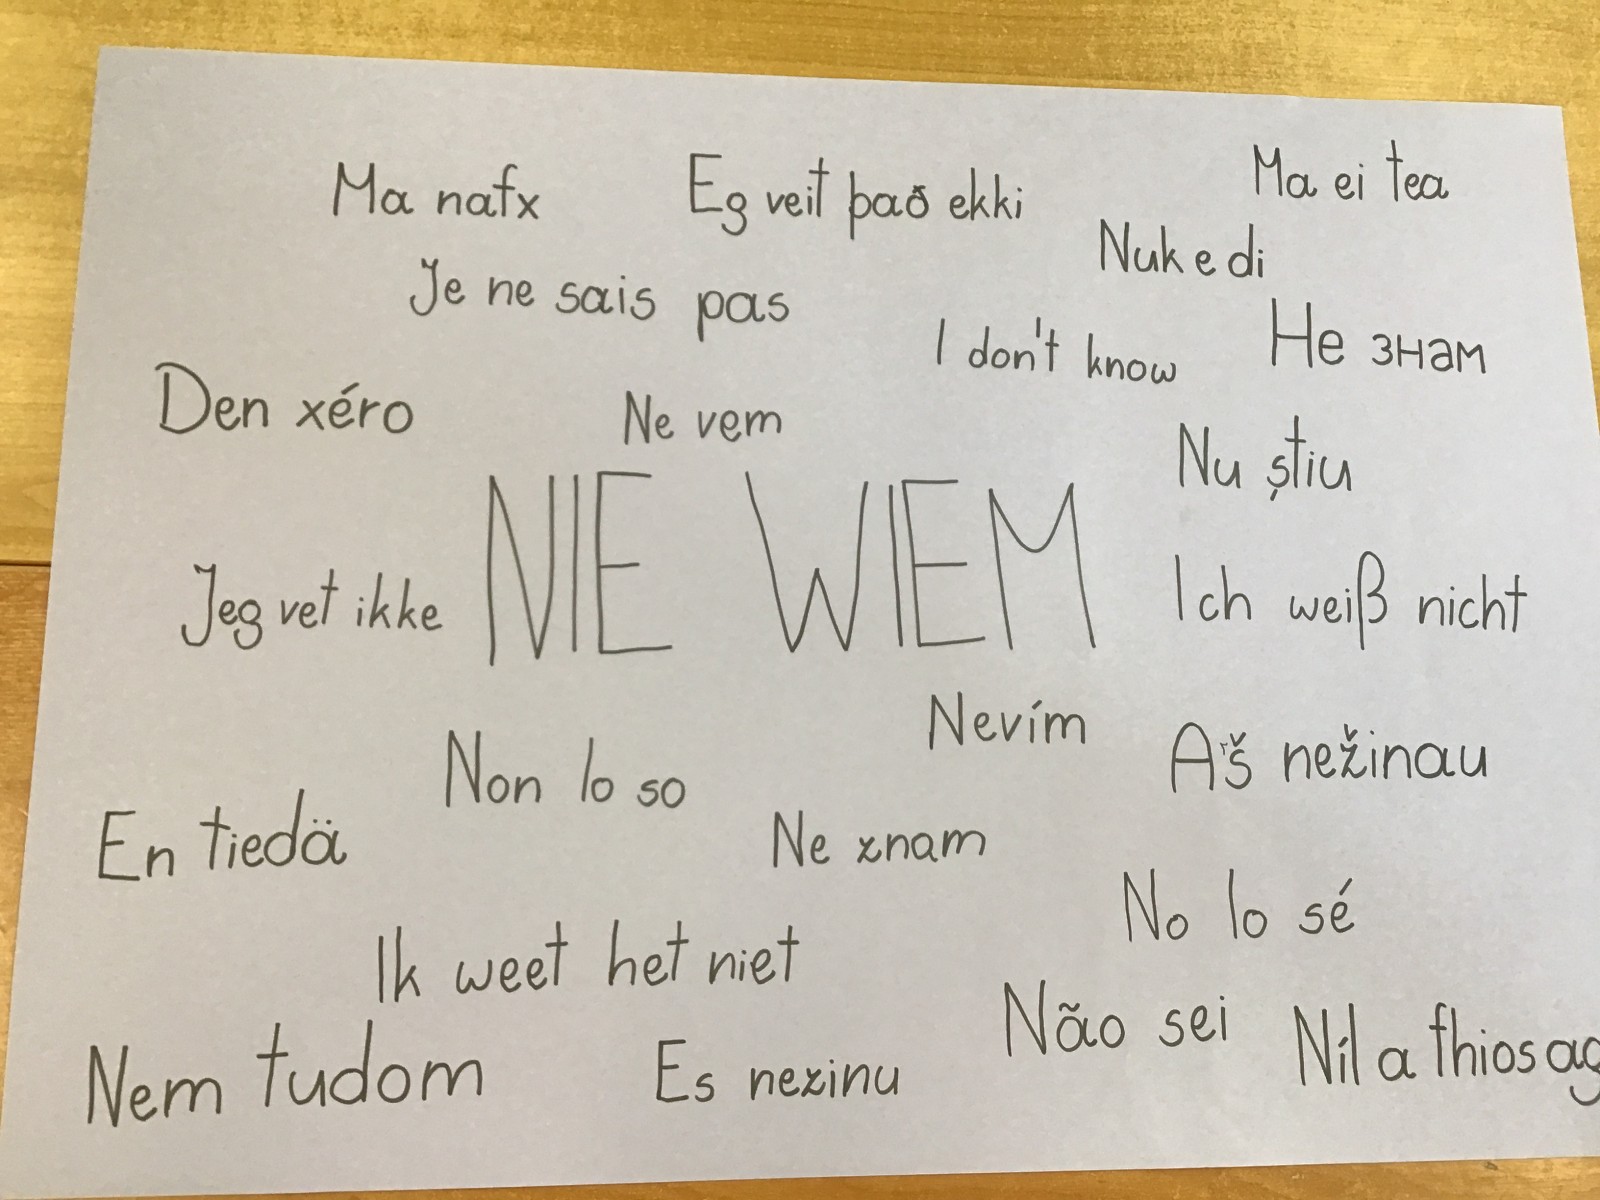 Ma nafx
Eg veit það ekki
Ma ei tea
Nuk e di
Je ne sais pas
I don't know
Не знам
Den xéro
Ne vem
Nu știu
NIE WIEM
Jeg vet ikke
Ich weiß nicht
Nevím
Aš nežinau
Non lo so
En tiedä
Ne znam
No lo sé
Ik weet het niet
Não sei
Níl a fhios ag
Nem tudom
Es nezinu